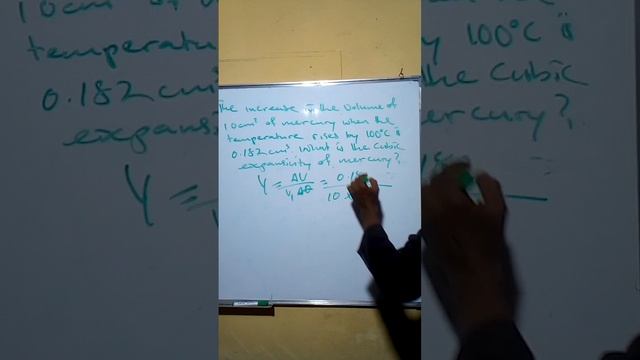 The increase in the volume of
10cm³ of mercury when the
temperature rises by 100°C is
0.182cm³. What is the cubic
expansivity of mercury?
γ = ΔV / V₁Δθ = 0.18 / 10